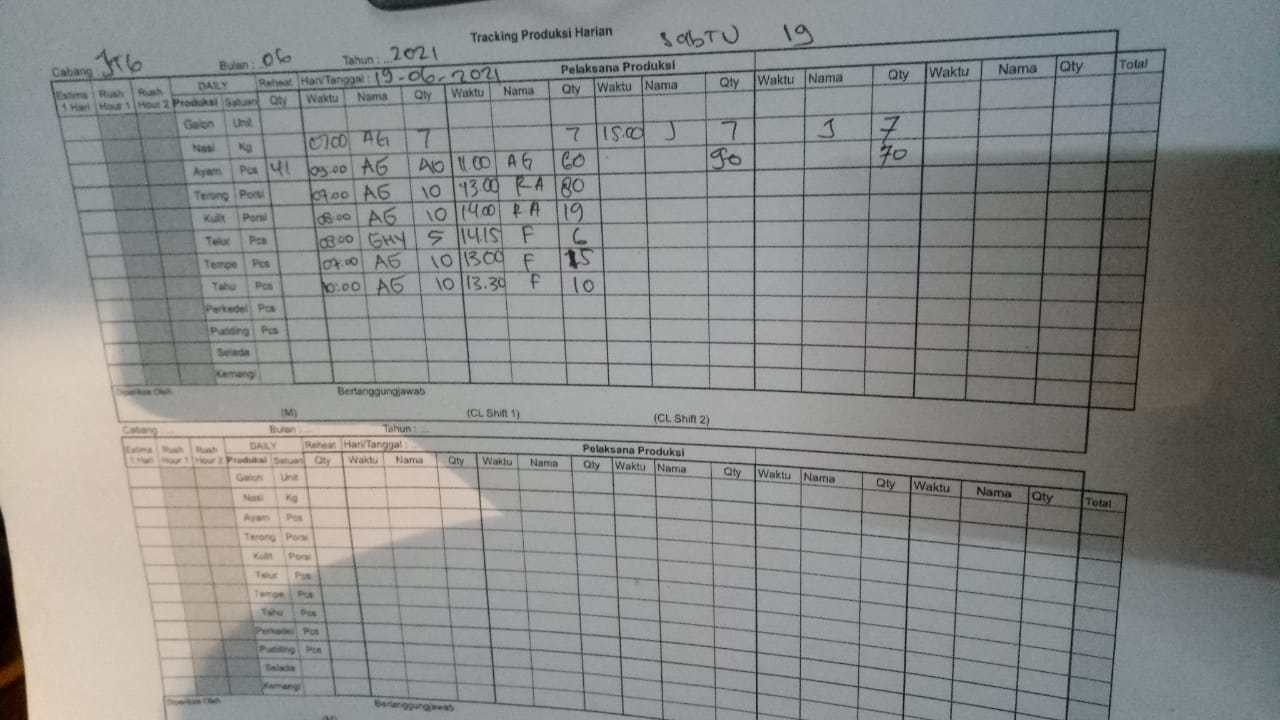 Tracking Produksi Harian SabTU 19
Cabang JTG Bulan : 06 Tahun : ... 2021
Estima Rush Rush DAILY Reheat Hari/Tanggal : 19-06-2021 Pelaksana Produksi
1 Hari Hour 1 Hour 2 Produksi Satuan Qty Waktu Nama Qty Waktu Nama Qty Waktu Nama Qty Waktu Nama Qty Waktu Nama Qty Total
Galon Unit
Nasi Kg 0700 AG 7 7 15.00 J 7 J 7
Ayam Pcs 41 09.00 AG 40 11.00 AG 60 90 70
Terong Porsi 07.00 AG 10 13.00 RA 80
Kulit Porsi 08.00 AG 10 14.00 RA 19
Telur Pcs 08.00 GHY 5 14.15 F 6
Tempe Pcs 07.00 AG 10 13.00 F 15
Tahu Pcs 10.00 AG 10 13.30 F 10
Perkedel Pcs
Pudding Pcs
Selada
Kemangi
Diperiksa Oleh Bertanggungjawab
(M) (CL Shift 1) (CL Shift 2)
Cabang : ... Bulan : ... Tahun : ...
Estima Rush Rush DAILY Reheat Hari/Tanggal : ... Pelaksana Produksi
1 Hari Hour 1 Hour 2 Produksi Satuan Qty Waktu Nama Qty Waktu Nama Qty Waktu Nama Qty Waktu Nama Qty Waktu Nama Qty Total
Galon Unit
Nasi Kg
Ayam Pcs
Terong Porsi
Kulit Porsi
Telur Pcs
Tempe Pcs
Tahu Pcs
Perkedel Pcs
Pudding Pcs
Selada
Kemangi
Diperiksa Oleh Bertanggungjawab
(M)